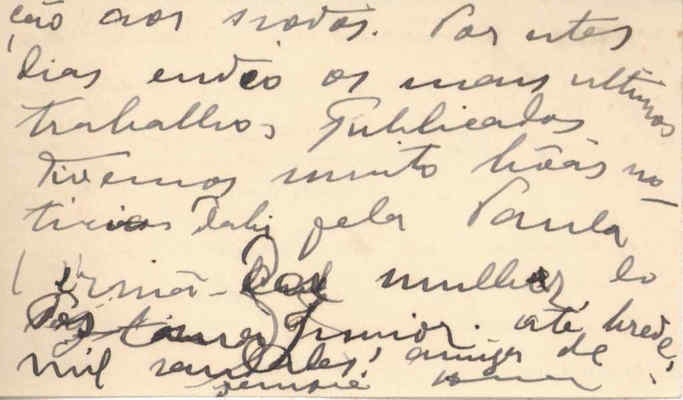 ção aos
Por estes
dias envio os meus ultimos
trabalhos publicados
Tivemos muito bôas no
ticias dahi pela Paula
(irmã da mulher do
Junior. até breve,
mil saudades, amigo de
sempre